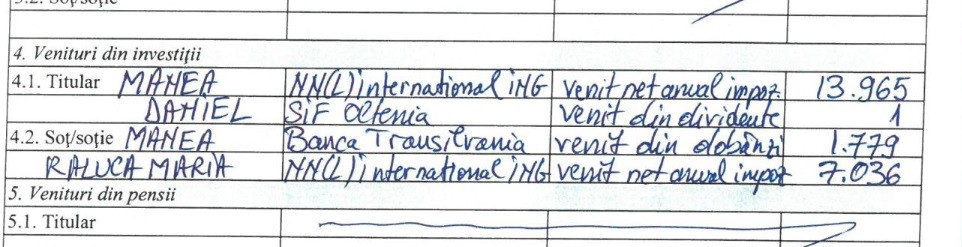 3.2. Soț/soție
4. Venituri din investiții
4.1. Titular MANEA NN(L) international iNG venit net anual impoz. 13.965
DANIEL SiF Oltenia venit din dividente 1
4.2. Soț/soție MANEA Banca Transilvania venit din dobânzi 1.779
RALUCA MARIA NN(L) international iNG venit net anual impoz 7.036
5. Venituri din pensii
5.1. Titular